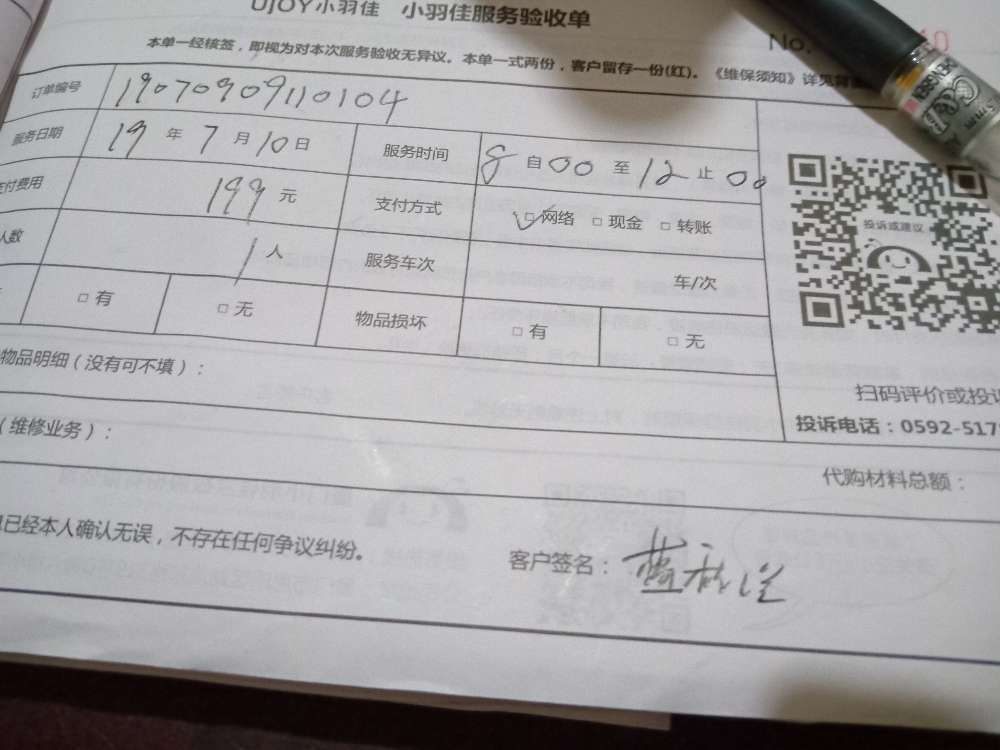 UJOY小羽佳 小羽佳服务验收单
No. 10
本单一经核签，即视为对本次服务验收无异议。本单一式两份，客户留存一份(红)。《维保须知》详见背面
订单编号 19070909110104
服务日期 19 年 7 月 10 日 服务时间 8 自 00 至 12 止 00
支付费用 199 元 支付方式 ☑网络 □现金 □转账
人数 1 人 服务车次 车/次
□有 □无 物品损坏 □有 □无
投诉或建议
物品明细（没有可不填）：
扫码评价或投诉
（维修业务）：
投诉电话：0592-517
代购材料总额：
已经本人确认无误，不存在任何争议纠纷。 客户签名：